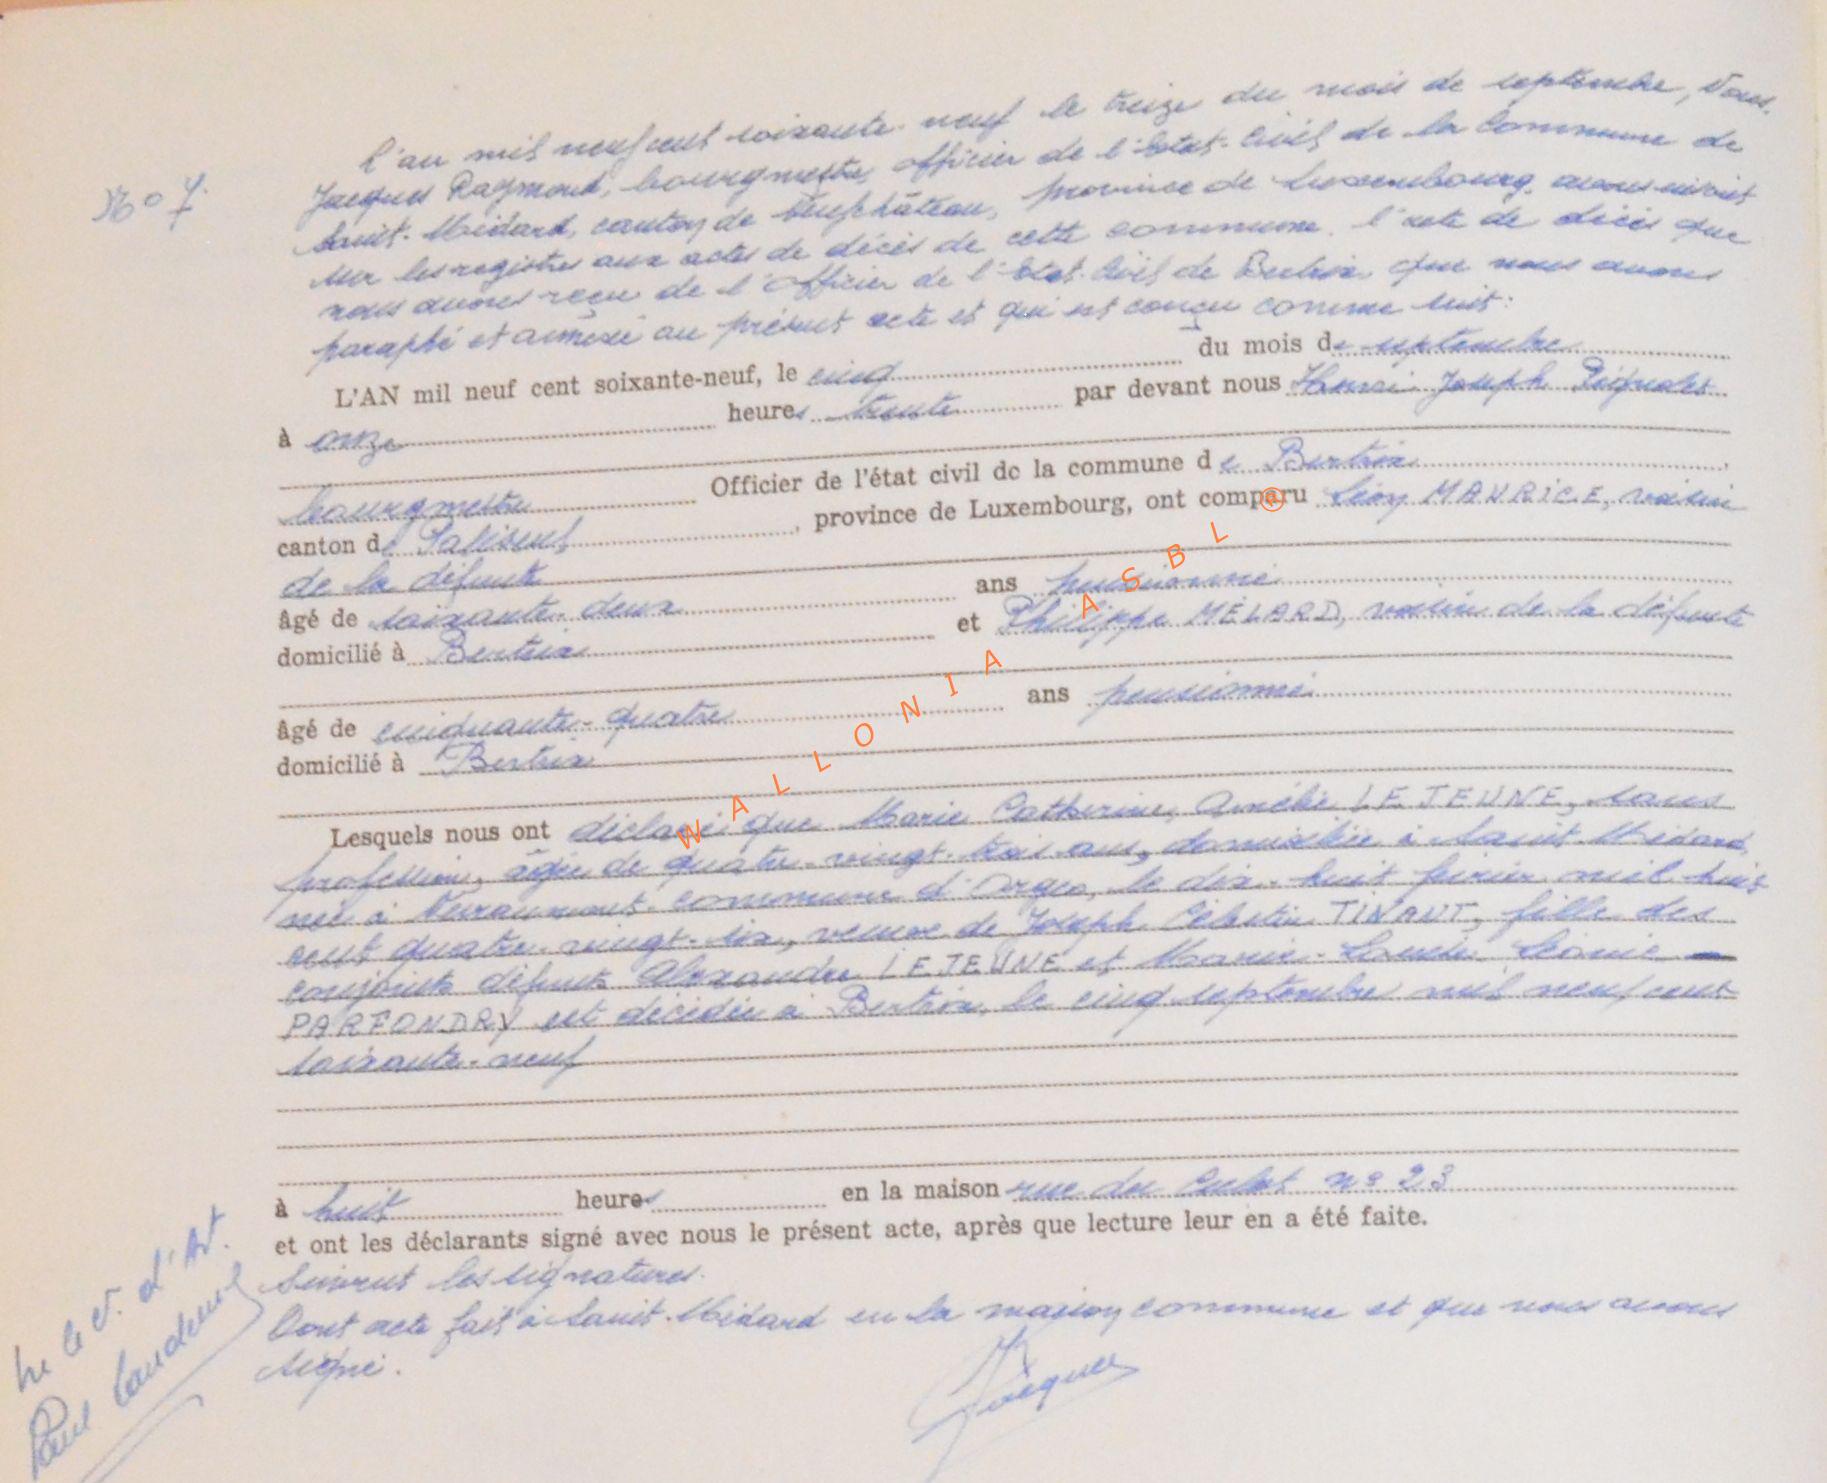 No 7.
L'an mil neuf cent soixante-neuf le treize du mois de septembre, Nous,
Jacques Raymond, bourgmestre, officier de l'Etat-Civil de la Commune de
Saint-Médard, canton de Neufchâteau, province de Luxembourg, avons inscrit
sur les registres aux actes de décès de cette commune, l'acte de décès que
nous avons reçu de l'Officier de l'Etat-Civil de Bertrix, que nous avons
paraphé et annexé au présent acte et qui est conçu comme suit:
L'AN mil neuf cent soixante-neuf, le cinq du mois de septembre
à onze heures trente par devant nous Henri Joseph
bourgmestre Officier de l'état civil de la commune de Bertrix,
canton de Paliseul, province de Luxembourg, ont comparu Léon MAURICE, voisin
de la défunte
âgé de soixante-deux ans pensionné
domicilié à Bertrix et Philippe MÉLARD, voisin de la défunte
âgé de cinquante-quatre ans pensionné
domicilié à Bertrix
Lesquels nous ont déclaré que Marie Catherine, Amélie LEJEUNE, sans
profession, âgée de quatre-vingt-trois ans, domiciliée à Saint-Médard,
née à commune d'Orgeo, le dix-huit février mil huit
cent quatre-vingt-six, veuve de Joseph Célestin TINANT, fille des
conjoints défunts Alexandre LEJEUNE et Marie- Léonie
PARFONDRY est décédée à Bertrix, le cinq septembre mil neuf cent
soixante-neuf
à huit heures en la maison rue du Culot no 23
et ont les déclarants signé avec nous le présent acte, après que lecture leur en a été faite.
Suivent les signatures.
Dont acte fait à Saint-Médard en la maison commune et que nous avons
signé.
Jacques
Paul
WALLONIA ASBL ®